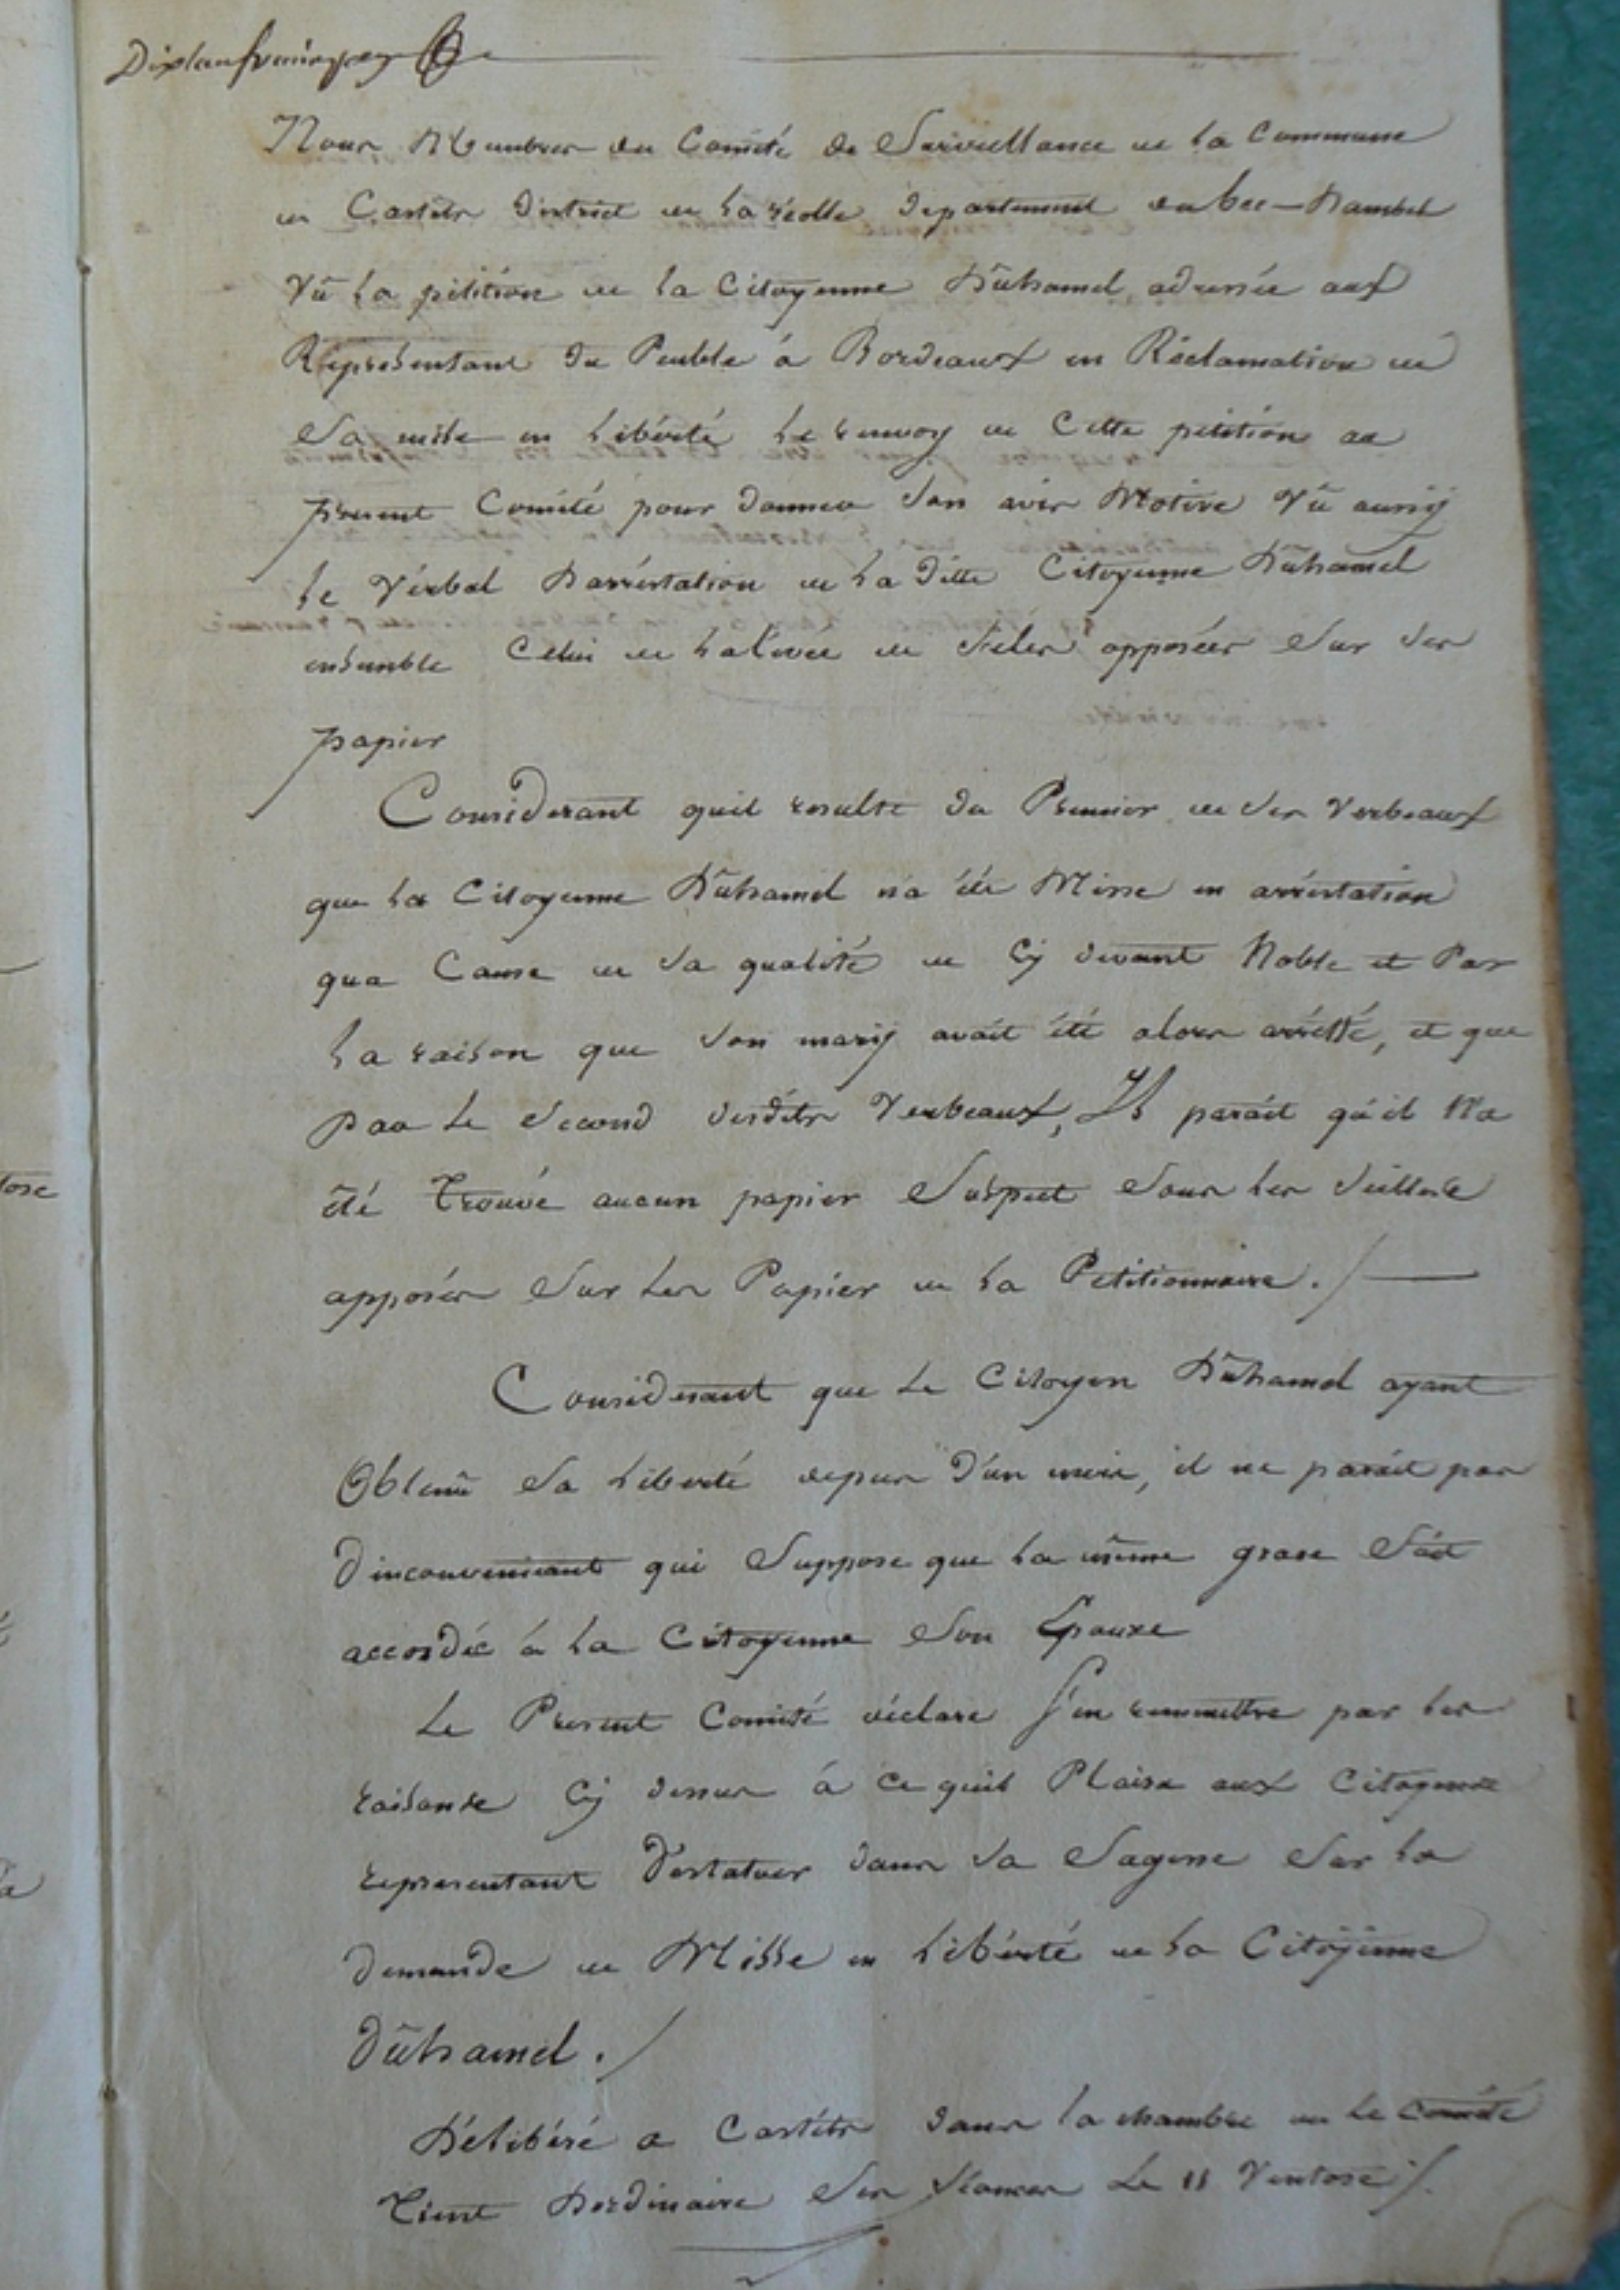 Nous Membres du Comité de Surveillance de la Commune
de Castets District de La réolle Departement du bec-Dambes
Vû La pétition de la Citoyenne Dûhamel adressée aux
Représentant du Peuble à Bordeaux en Réclamation de
Sa mise en Libérté Le renvoy de Cette pétition au
présent Comité pour donner Son avis Motivé Vû aussy
Le Vérbal Darréstation de La ditte Citoyenne Dûhamel
ensemble Celui de La levée de Scéles apposées Sur Ses
papier
Considerant quil resulte du Premier de Ses Verbeaux
que La Citoyenne Dûhamel n'a été Misse en arréstation
qua Cause de Sa qualité de Cy devant Noble et Par
La raison que Son mary avait été alors arrétté, et que
Par Le Second desdéts Verbeaux, Il parait qu'il Na
été Trouvé aucun papier Suspect Sous Les Scellese
apposés Sur Les Papier de La Petitionnaire ./
Considerant que Le Citoyen Dûhamel ayant
Obtenû Sa Liberté depuis d'un mois, il ne parait pas
dinconveniant qui Suppose que La même grase Soit
accordée á La Citoyenne Son Epouxe
Le Present Comité déclare S'en remmettre par Les
raisonse Cy dessus á Ce quil Plaise aux Citoyense
representant d'estatuer dans Sa Sagesse Sur La
demande de Misse en Libérté de La Citoyenne
Dûhamel ./
Délibéré a Castéts dans La chambre ou Le Comité
Tient Dordinaire Ses Séances Le 11 Ventose ./.